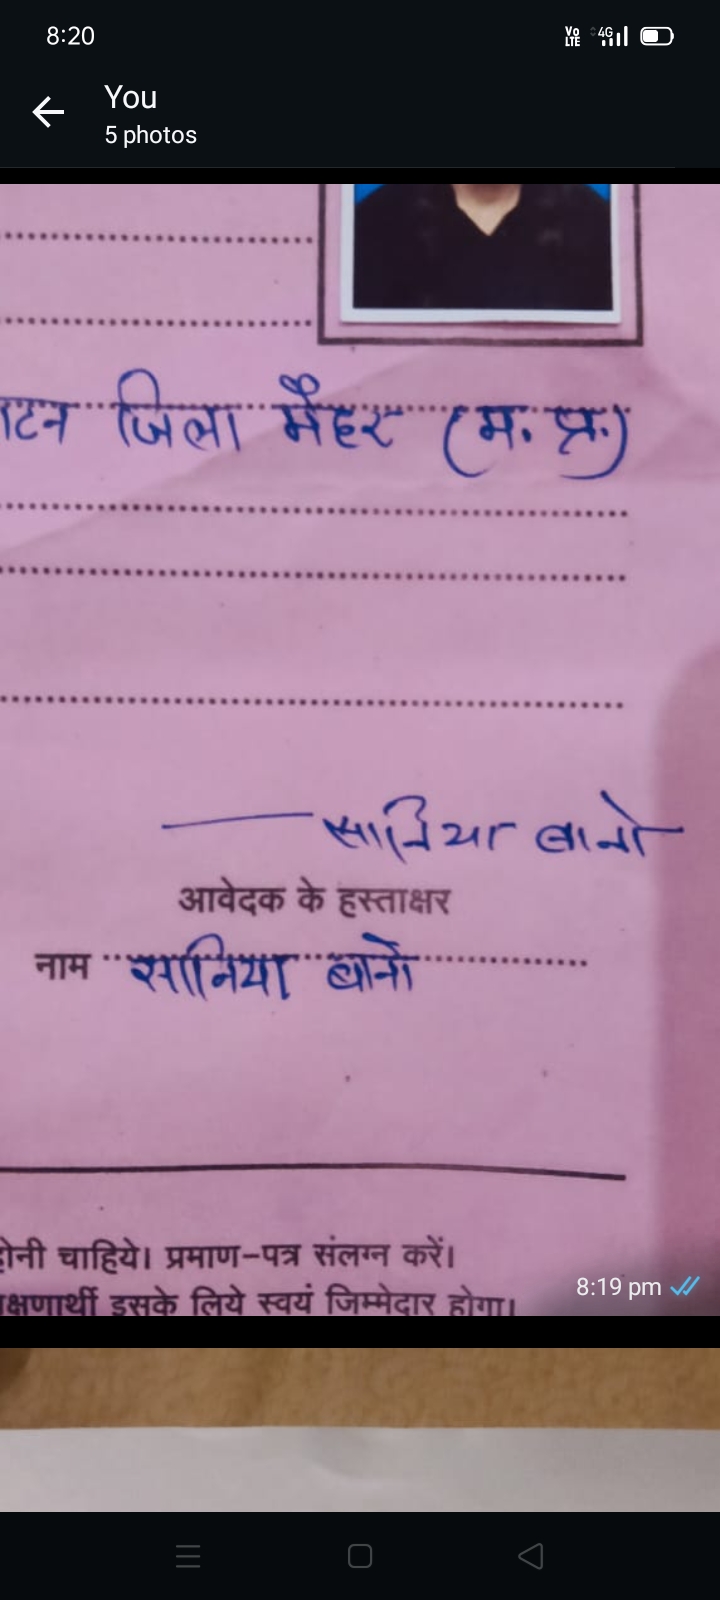 8:20
Vo LTE 4G
You
5 photos
जिला मैहर (म. प्र.)
सानिया बानो
आवेदक के हस्ताक्षर
नाम सानिया बानो
होनी चाहिये। प्रमाण-पत्र संलग्न करें।
इसके लिये स्वयं जिम्मेदार होगा।
8:19 pm